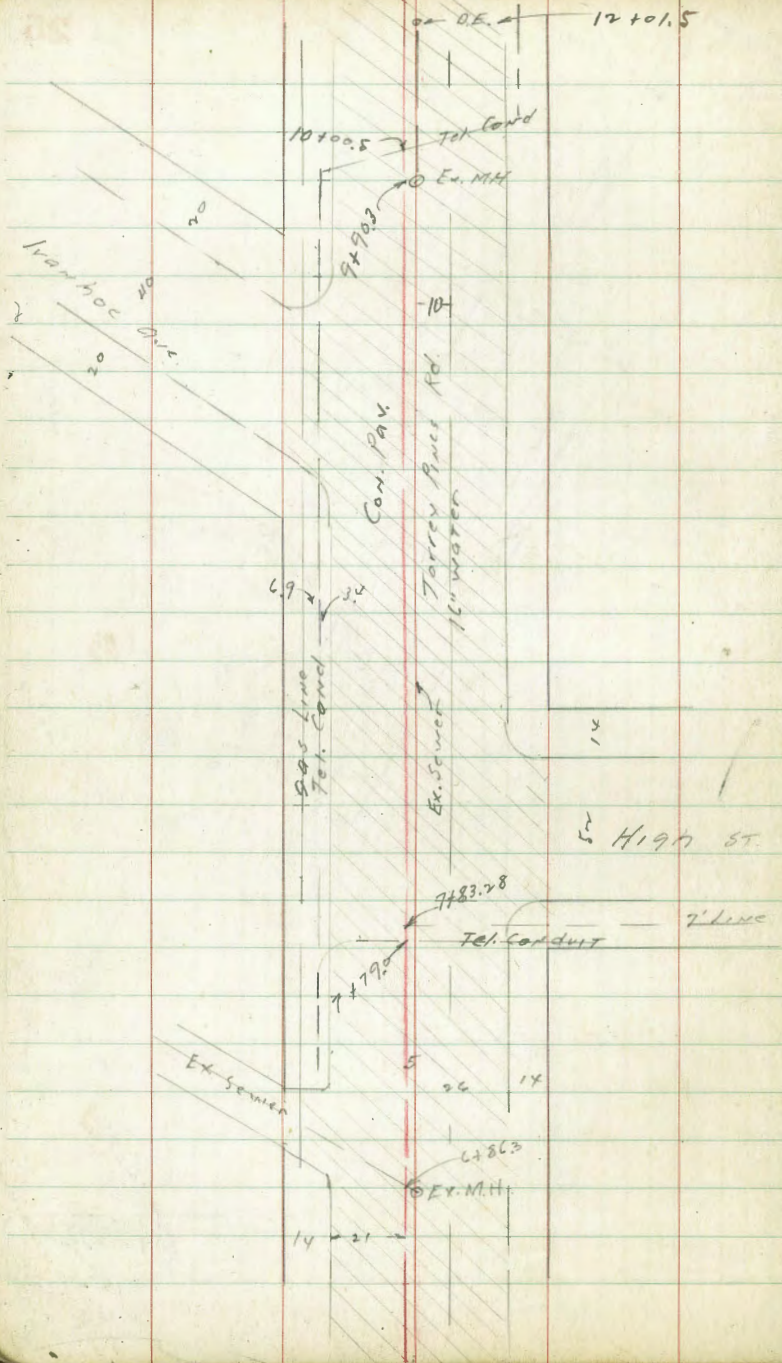 D.E. 12+01.5
10+00.5 Tel. Cond
Ex. M.H
9+90.3
20
Ivanhoe Ave.
40
20
10
Con. Pav.
Torrey Pines Rd.
16" water
6.9 3.4
Gas Line
Tel. Cond
Ex. Sewer
14
52 High ST.
7+83.28
2" Line
Tel. Conduit
7+79.0
Ex Sewer
5
26 14
6+86.3
Ex. M.H.
14 21